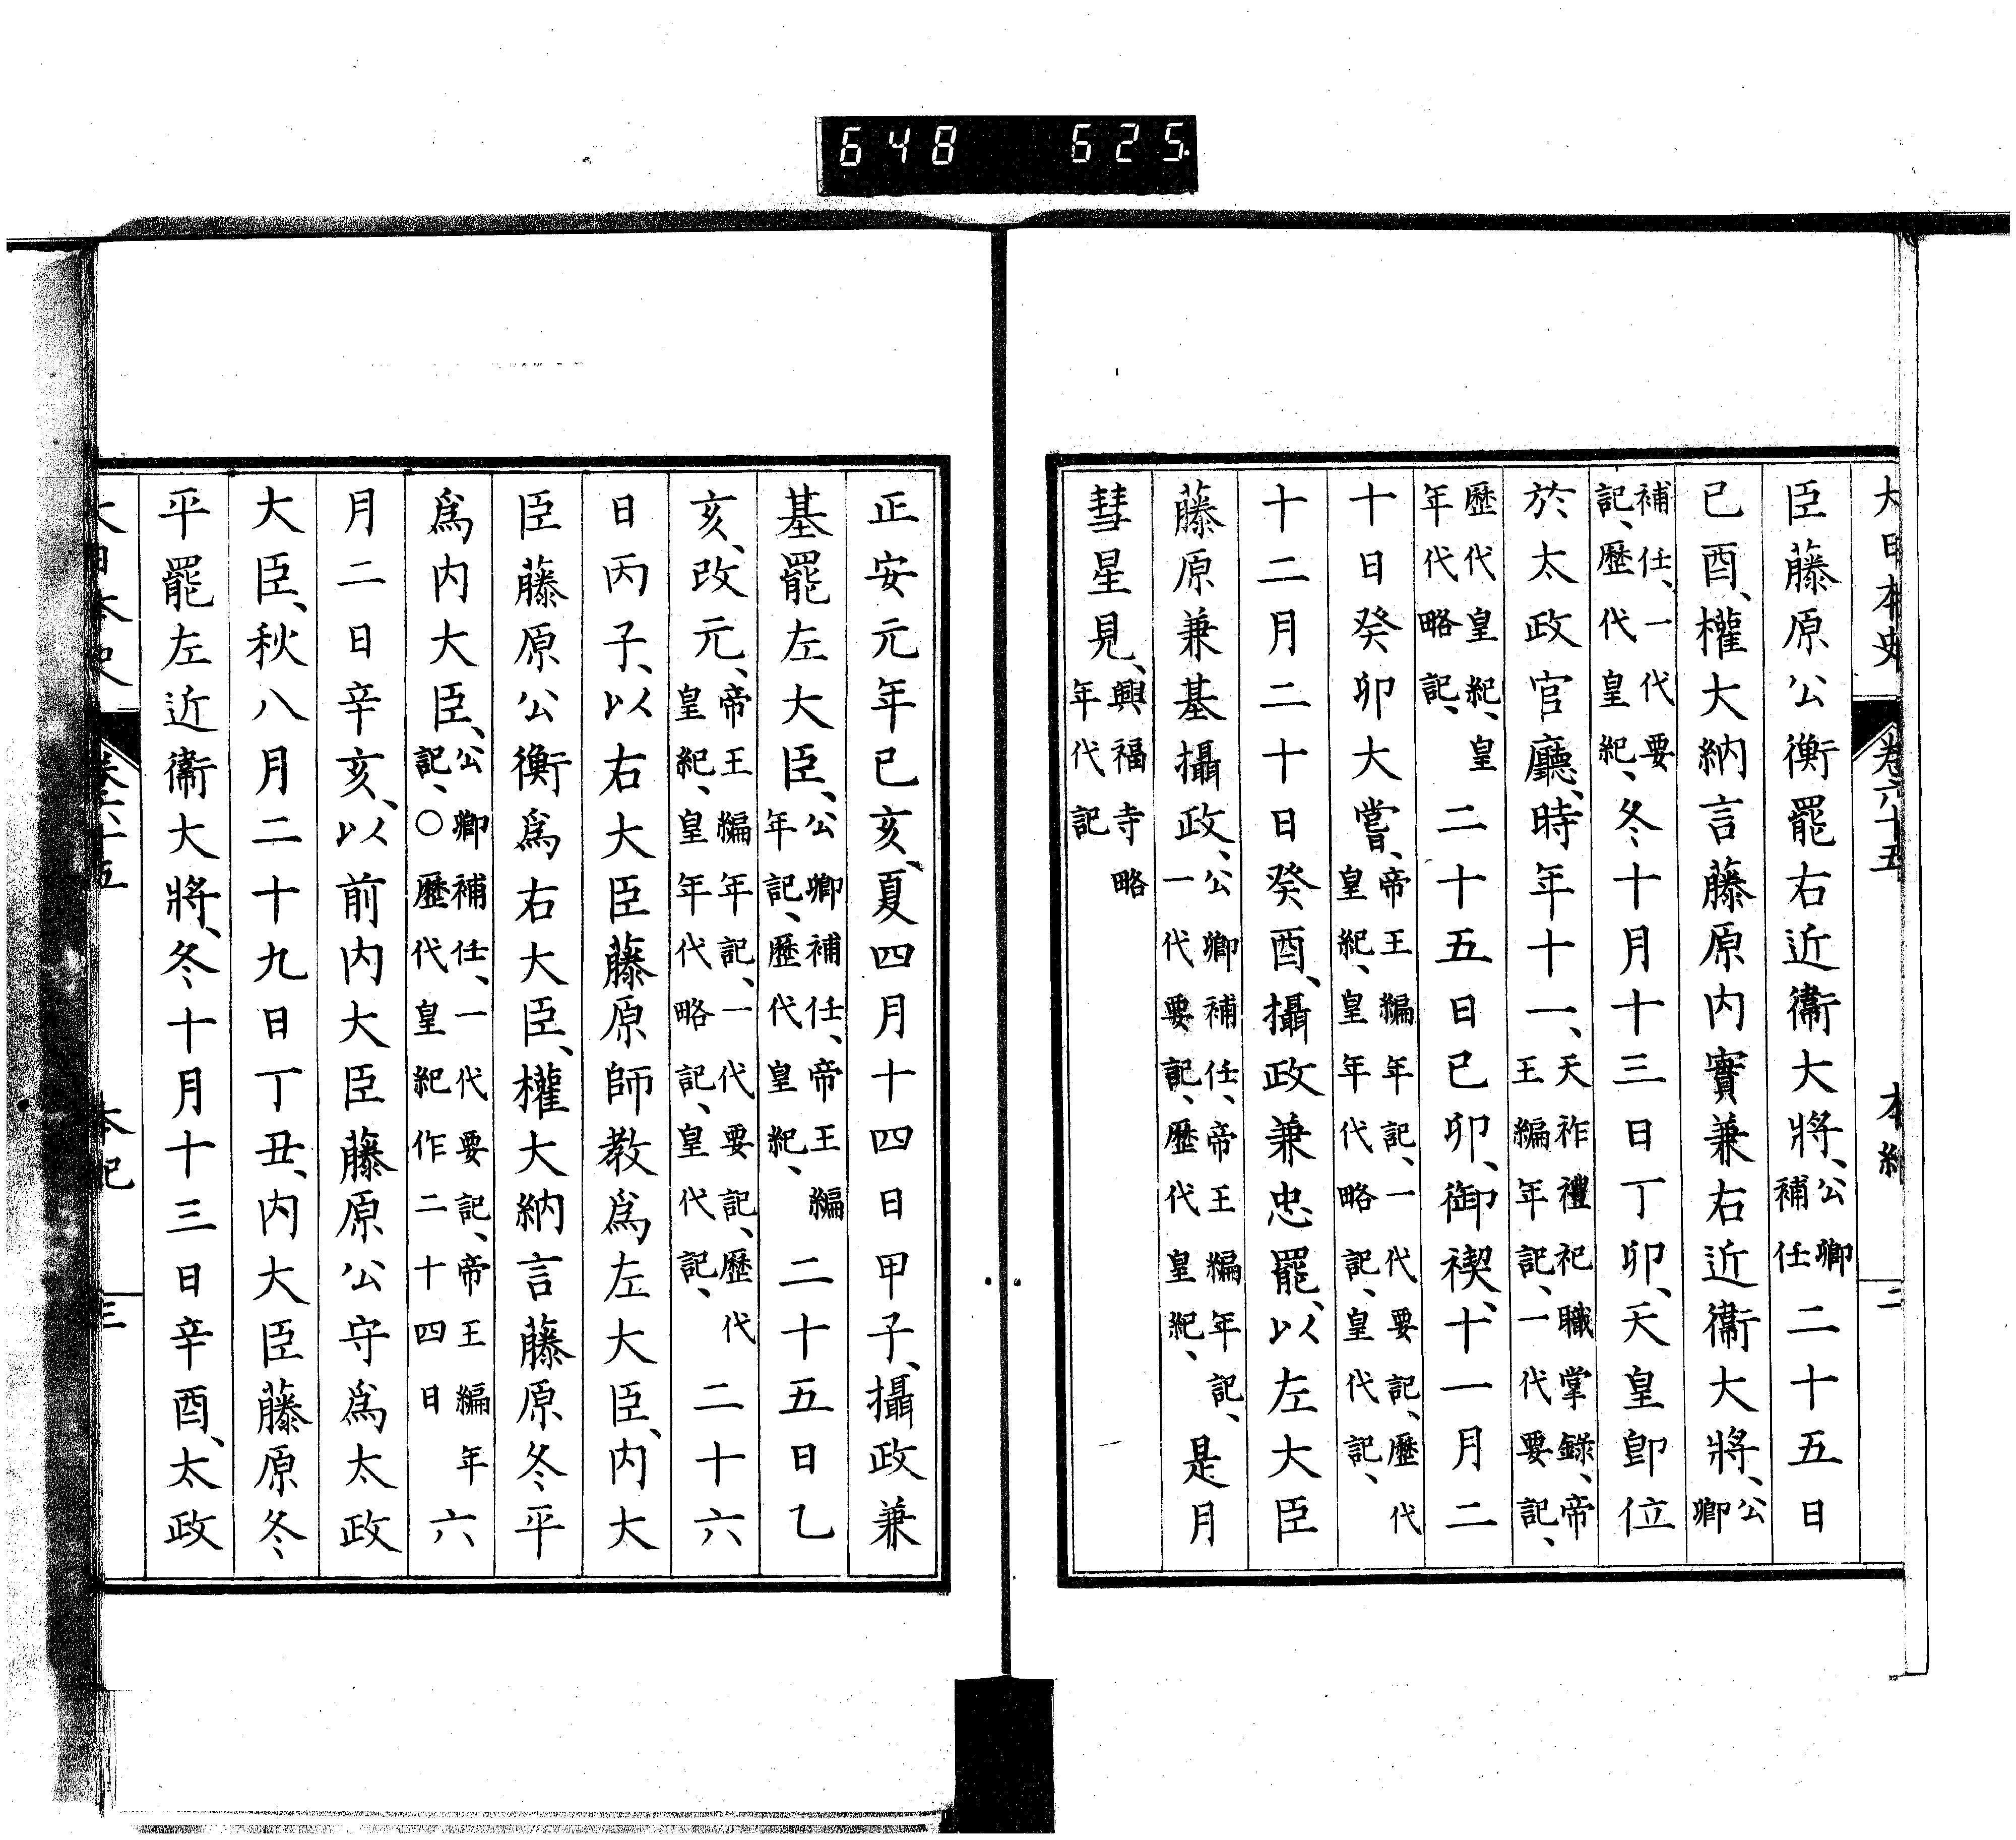 648 625
大日本史 卷六十五 本紀 二
臣藤原公衡罷右近衞大將、公卿補任二十五日
己酉、權大納言藤原内實兼右近衞大將、公卿
補任、一代要記、歷代皇紀、冬十月十三日丁卯、天皇卽位
於太政官廳、時年十一、天祚禮祀職掌錄、帝王編年記、一代要記、
歷代皇紀、皇年代略記、二十五日己卯、御禊、十一月二
十日癸卯大嘗、帝王編年記、一代要記、歷代皇紀、皇年代略記、皇代記、
十二月二十日癸酉、攝政兼忠罷、以左大臣
藤原兼基攝政、公卿補任、帝王編年記、一代要記、歷代皇紀、是月
彗星見、興福寺略年代記
正安元年己亥、夏四月十四日甲子、攝政兼
基罷左大臣、公卿補任、帝王編年記、歷代皇紀、二十五日乙
亥、改元、帝王編年記、一代要記、歷代皇紀、皇年代略記、皇代記、二十六
日丙子、以右大臣藤原師教爲左大臣、内大
臣藤原公衡爲右大臣、權大納言藤原冬平
爲内大臣、公卿補任、一代要記、帝王編年記、○歷代皇紀作二十四日六
月二日辛亥、以前内大臣藤原公守爲太政
大臣、秋八月二十九日丁丑、内大臣藤原冬
平罷左近衞大將、冬十月十三日辛酉、太政
大日本史 卷六十五 本紀 三